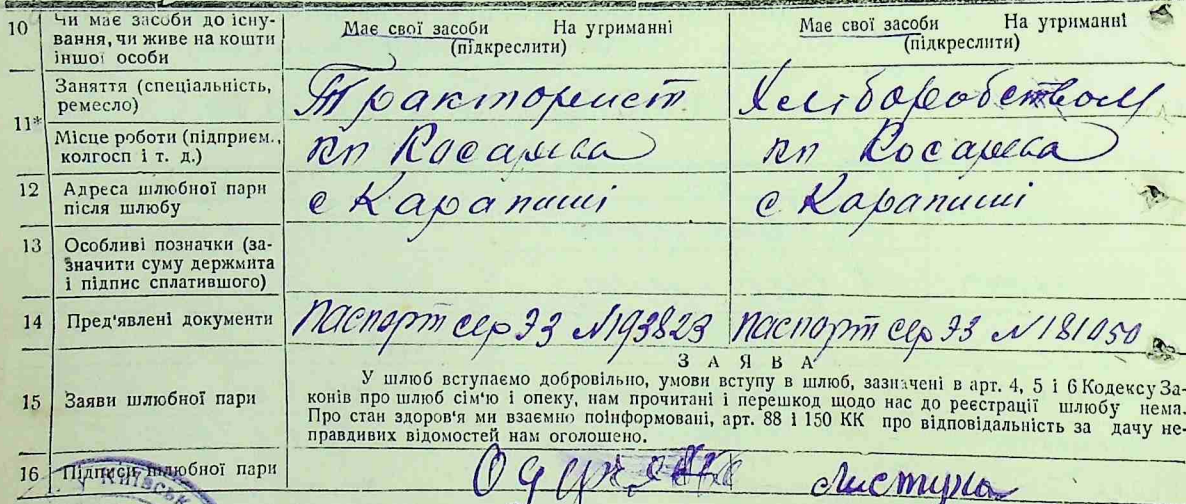 10 Чи має засоби до існу-
вання, чи живе на кошти
іншої особи
Має свої засоби На утриманні
(підкреслити)
Має свої засоби На утриманні
(підкреслити)
11* Заняття (спеціальність,
ремесло)
Тракторист
Хліборобством
Місце роботи (підприєм.,
колгосп і т. д.)
кп Косарева
кп Косарева
12 Адреса шлюбної пари
після шлюбу
с Карапиші
с Карапиші
13 Особливі позначки (за-
значити суму держмита
і підпис сплатившого)
14 Пред'явлені документи
Паспорт сер ЭЗ №193823
Паспорт сер ЭЗ №181050
ЗАЯВА
15 Заяви шлюбної пари
У шлюб вступаємо добровільно, умови вступу в шлюб, зазначені в арт. 4, 5 і 6 Кодексу За-
конів про шлюб сім'ю і опеку, нам прочитані і перешкод щодо нас до реєстрації шлюбу нема.
Про стан здоров'я ми взаємно поінформовані, арт. 88 і 150 КК про відповідальність за дачу не-
правдивих відомостей нам оголошено.
16 Підписи шлюбної пари
Листуха